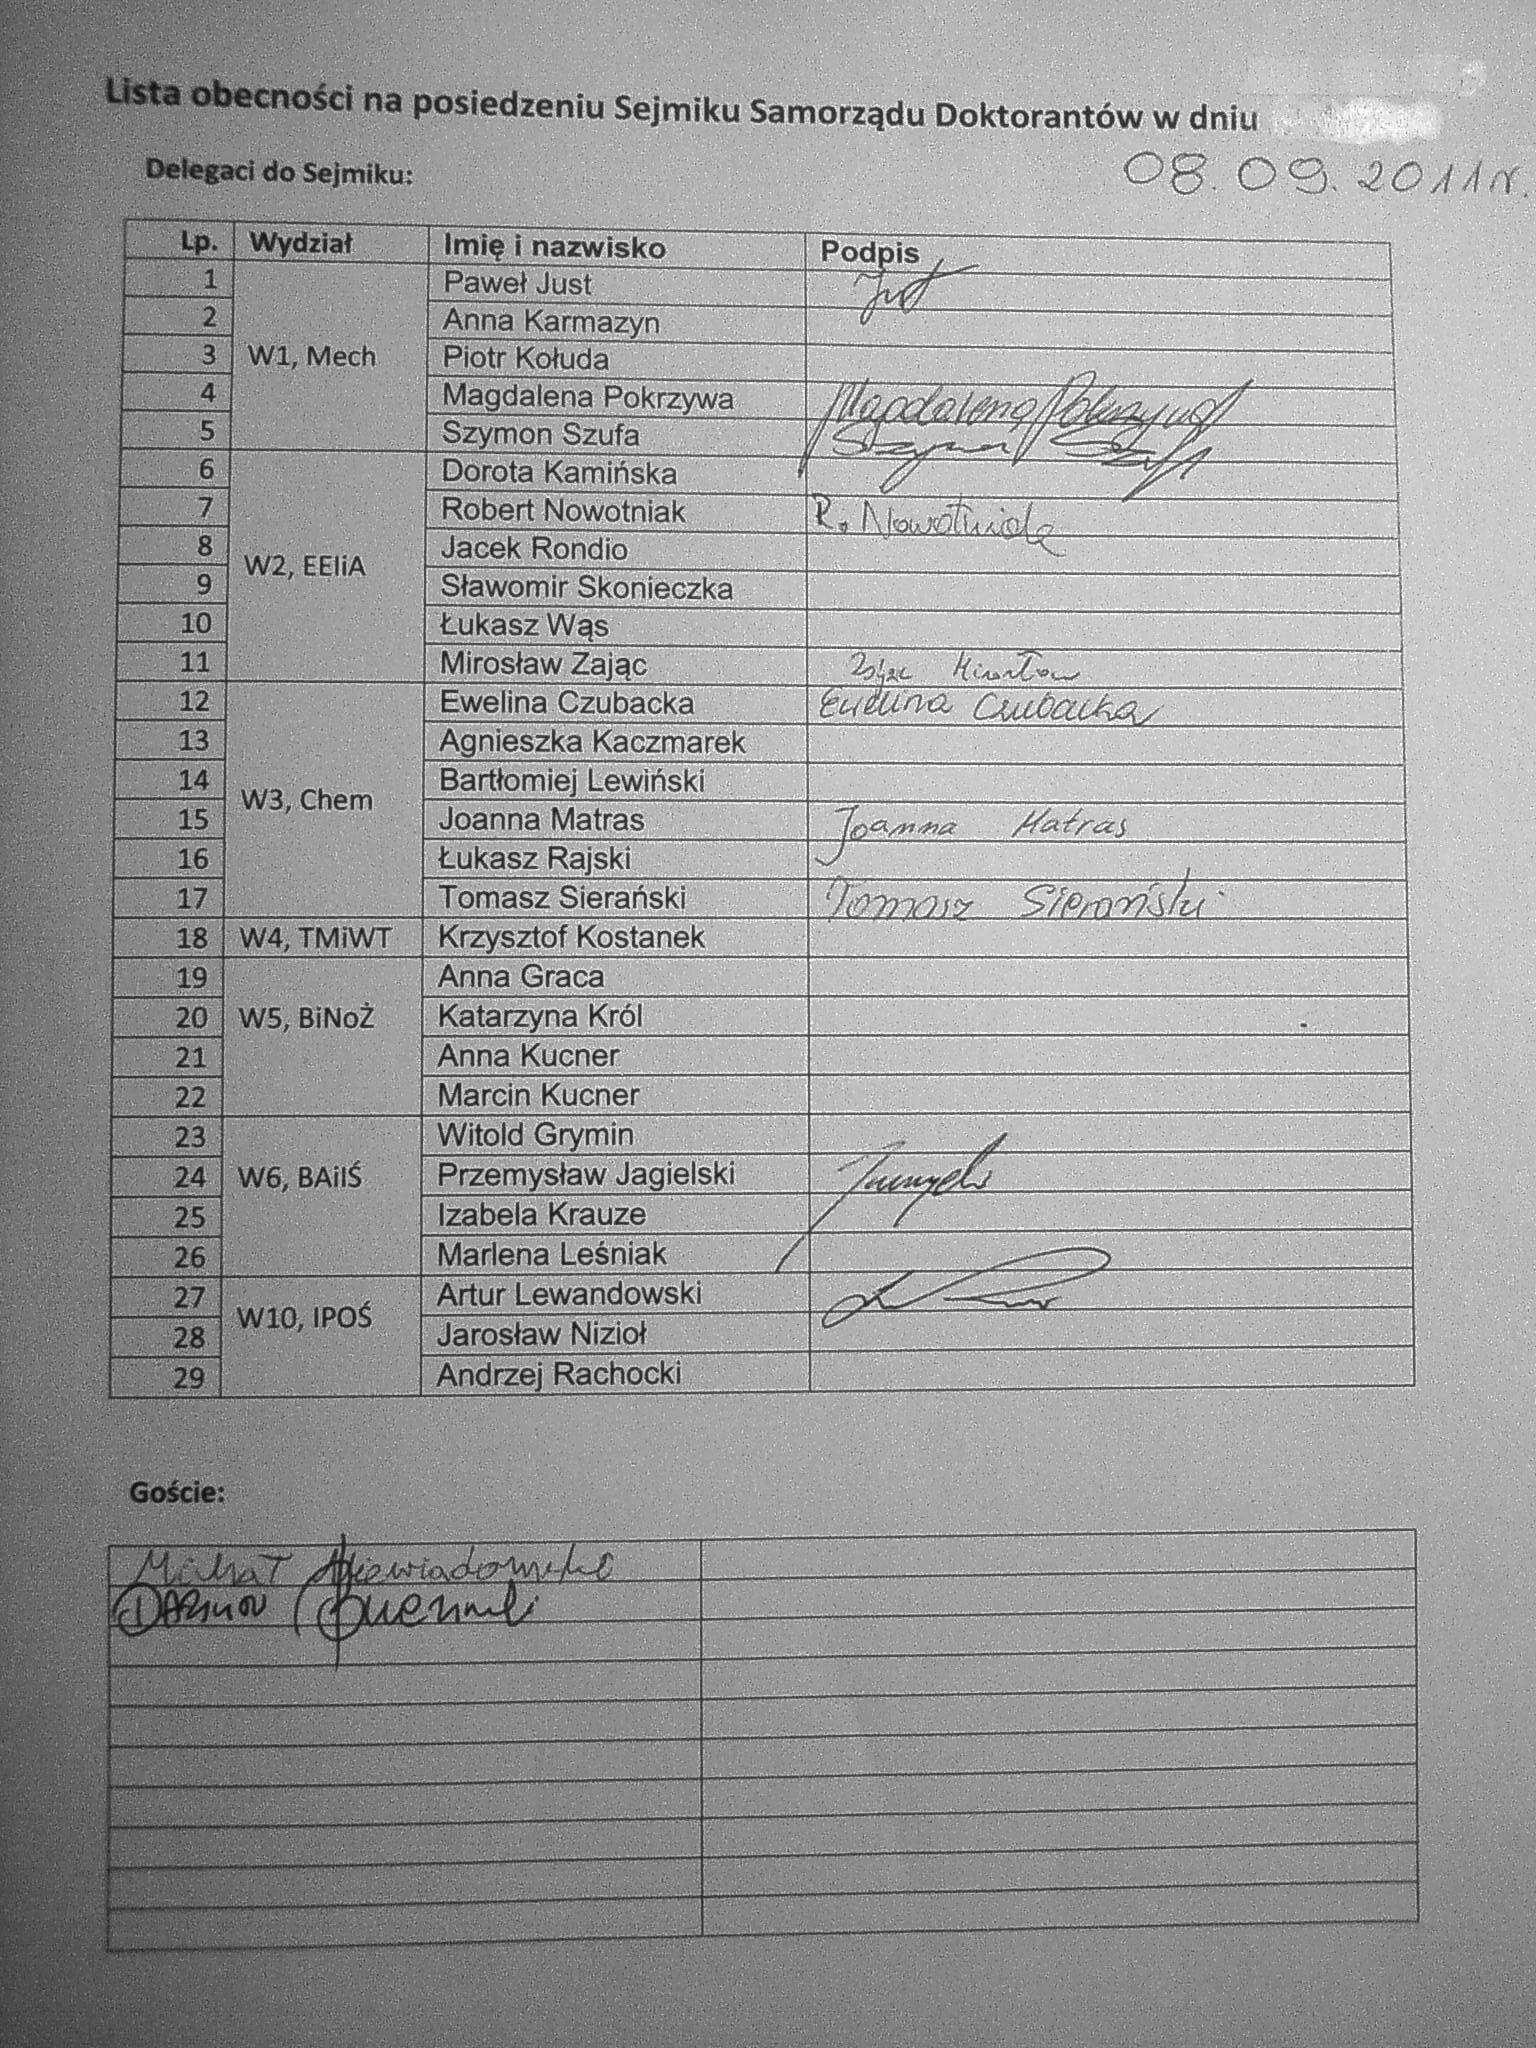 Lista obecności na posiedzeniu Sejmiku Samorządu Doktorantów w dniu
08.09.2011r.
Delegaci do Sejmiku:
Lp. Wydział Imię i nazwisko Podpis
1 Paweł Just Just
2 Anna Karmazyn
3 W1, Mech Piotr Kołuda
4 Magdalena Pokrzywa Magdalena Pokrzywa
5 Szymon Szufa Szymon Szufa
6 Dorota Kamińska
7 Robert Nowotniak R. Nowotniak
8 W2, EEIiA Jacek Rondio
9 Sławomir Skonieczka
10 Łukasz Wąs
11 Mirosław Zając Zając Mirosław
12 Ewelina Czubacka Ewelina Czubacka
13 Agnieszka Kaczmarek
14 W3, Chem Bartłomiej Lewiński
15 Joanna Matras Joanna Matras
16 Łukasz Rajski
17 Tomasz Sierański Tomasz Sierański
18 W4, TMiWT Krzysztof Kostanek
19 Anna Graca
20 W5, BiNoŻ Katarzyna Król
21 Anna Kucner
22 Marcin Kucner
23 Witold Grymin
24 W6, BAiIŚ Przemysław Jagielski
25 Izabela Krauze
26 Marlena Leśniak
27 W10, IPOŚ Artur Lewandowski
28 Jarosław Nizioł
29 Andrzej Rachocki
Goście:
Michał Niewiadomski